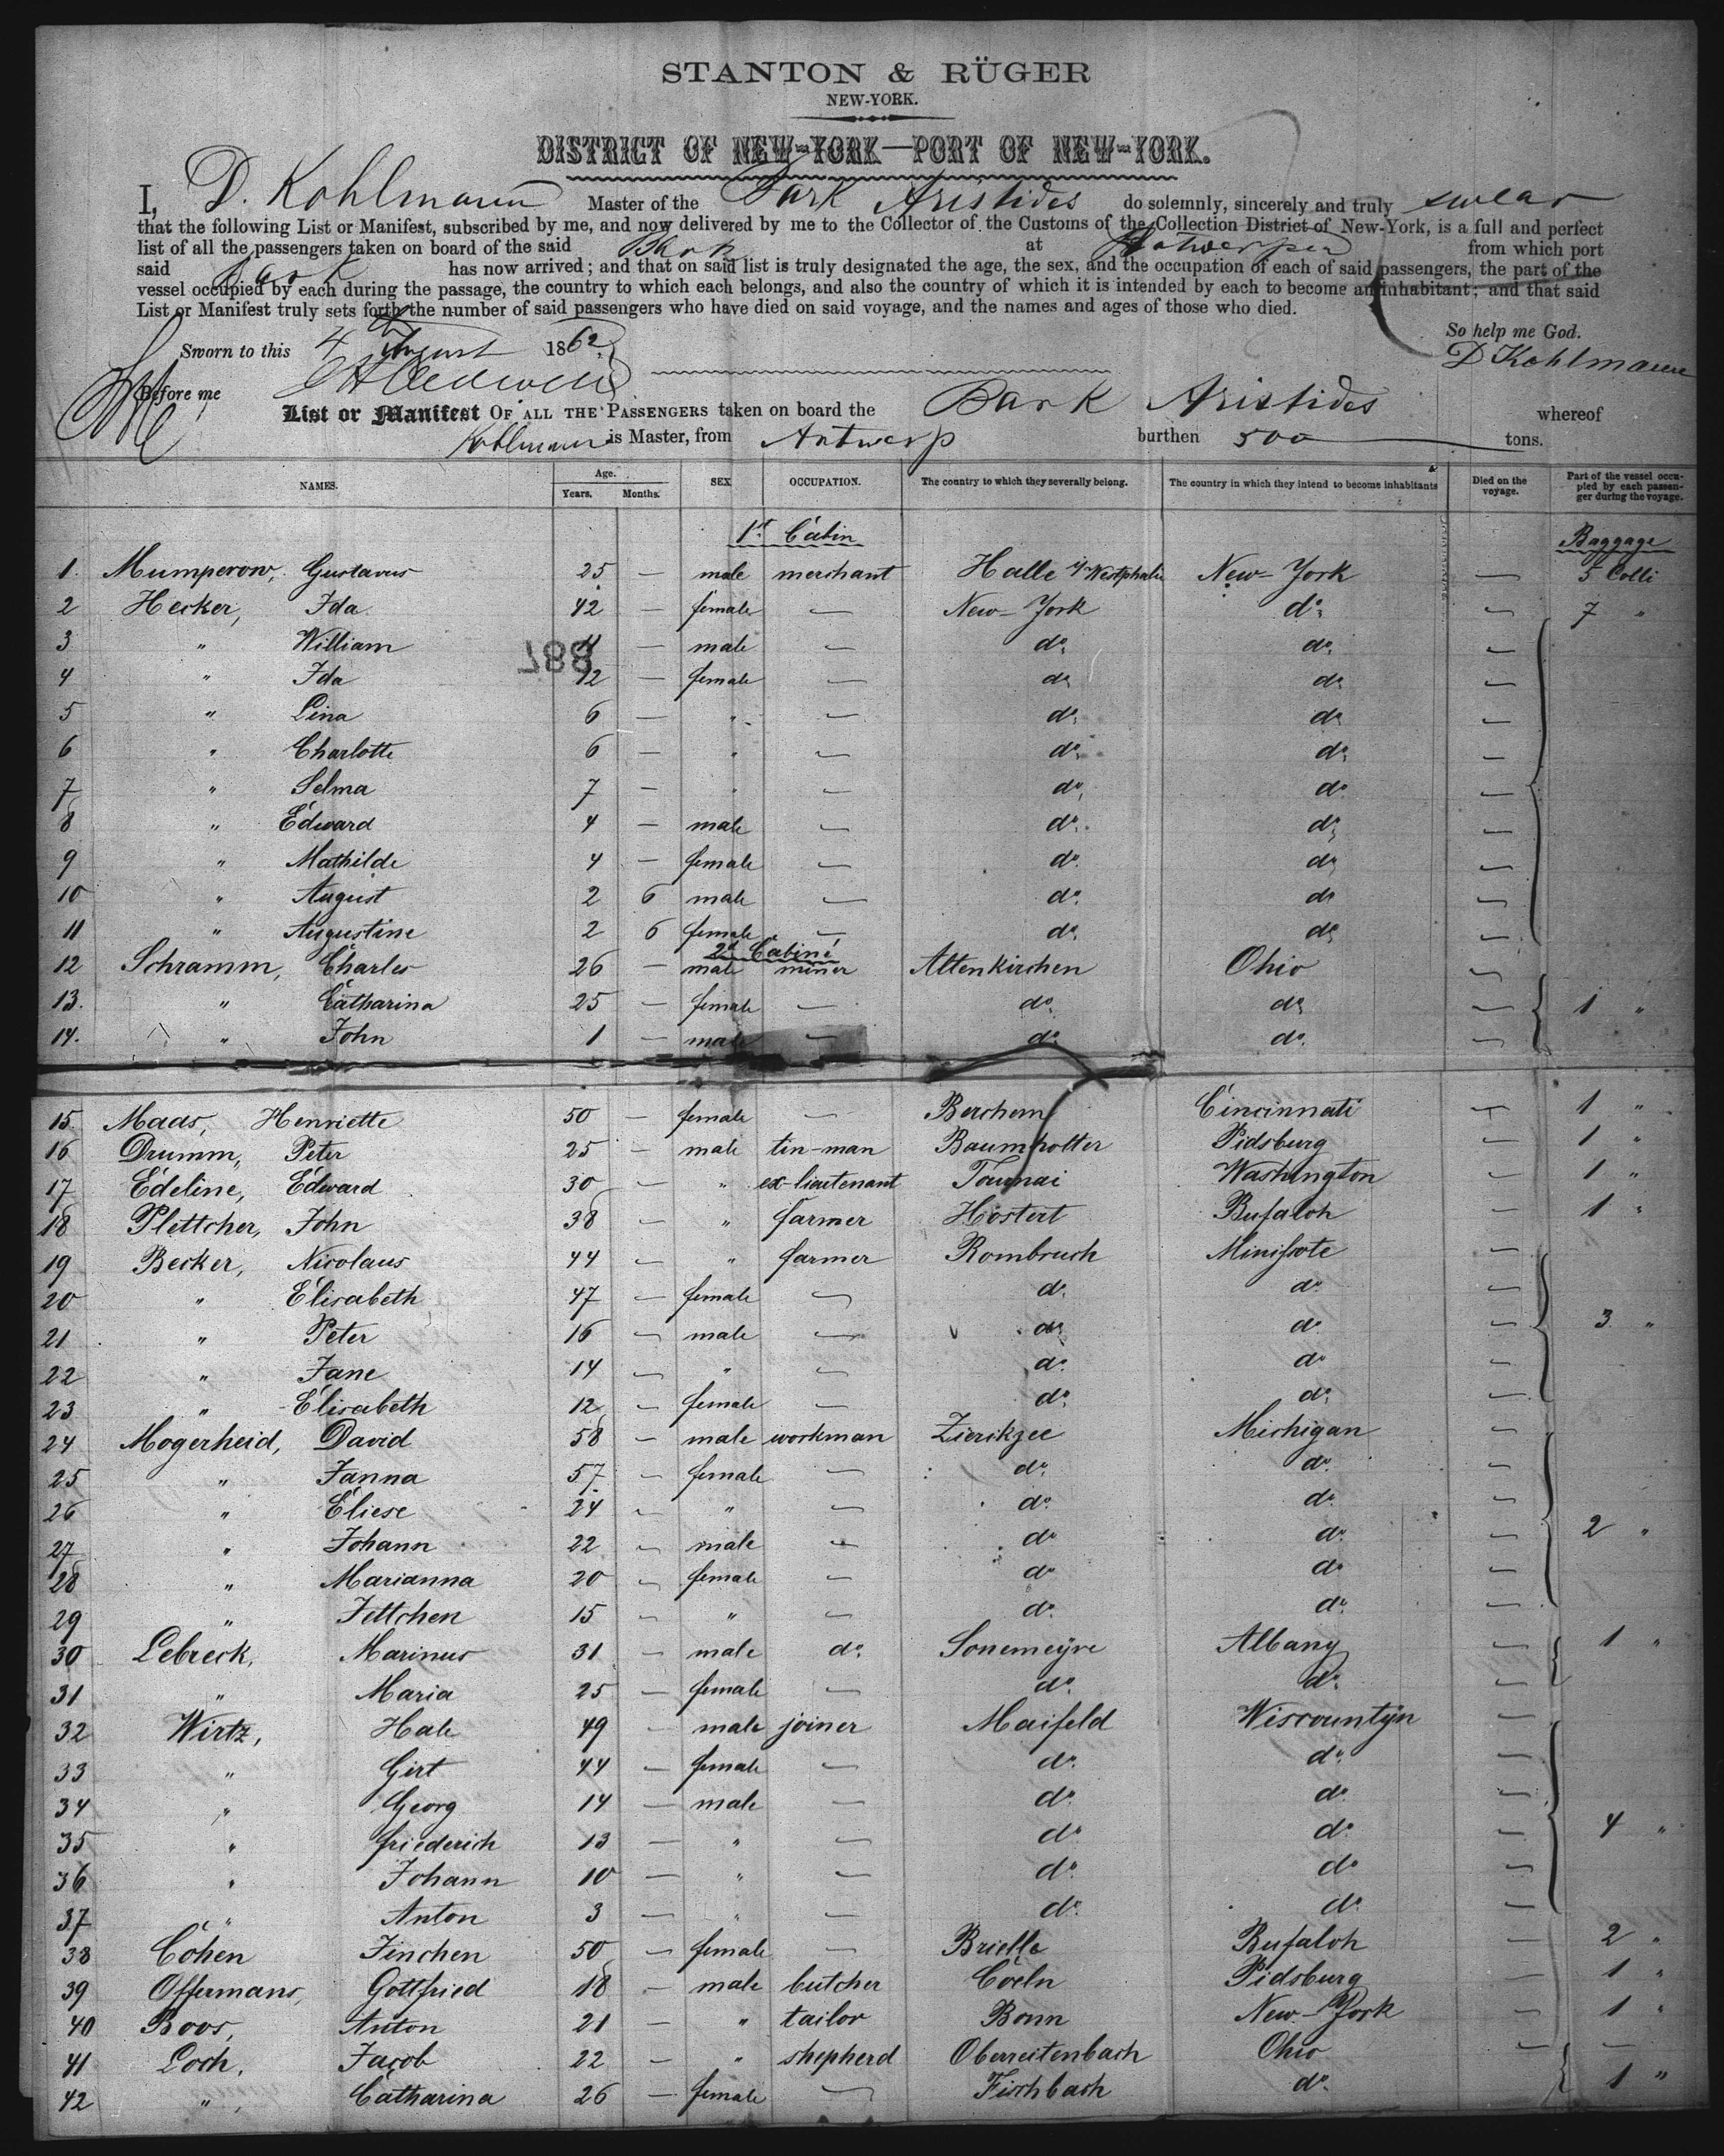 STANTON & RÜGER
NEW-YORK.
DISTRICT OF NEW-YORK—PORT OF NEW-YORK.
I, D. Kohlmann Master of the Bark Aristides do solemnly, sincerely and truly swear
that the following List or Manifest, subscribed by me, and now delivered by me to the Collector of the Customs of the Collection District of New-York, is a full and perfect
list of all the passengers taken on board of the said Bark at Antwerpen from which port
said Bark has now arrived; and that on said list is truly designated the age, the sex, and the occupation of each of said passengers, the part of the
vessel occupied by each during the passage, the country to which each belongs, and also the country of which it is intended by each to become an inhabitant; and that said
List or Manifest truly sets forth the number of said passengers who have died on said voyage, and the names and ages of those who died.
So help me God.
Sworn to this 4 August 1862 D Kohlmann
Before me
List or Manifest OF ALL THE PASSENGERS taken on board the Bark Aristides whereof
Kohlmann is Master, from Antwerp burthen 500 tons.
NAMES. Age. Years. Months. SEX OCCUPATION. The country to which they severally belong. The country in which they intend to become inhabitants Died on the voyage. Part of the vessel occupied by each passenger during the voyage.
1st Cabin Baggage
1. Mumperow, Gustavus 25 — male merchant Halle i/Westphalie New-York — 5 Colli
2 Hecker, Ida 42 — female — New-York do. — 7 "
3 " William 11 — male — do. do. —
887
4 " Ida 12 — female — do. do. —
5 " Lina 6 — " — do. do. —
6 " Charlotte 6 — " — do. do. —
7 " Selma 7 — " — do. do. —
8 " Edward 4 — male — do. do. —
9 " Mathilde 4 — female — do. do. —
10 " August 2 6 male — do. do. —
11 " Augustine 2 6 female — do. do. —
2d Cabine
12 Schramm, Charles 26 — male miner Altenkirchen Ohio —
13. " Catharina 25 — female — do. do. — 1 "
14. " John 1 — male — do. do. —
15. Maas, Henriette 50 — female — Berchem Cincinnati — 1 "
16 Drumm, Peter 25 — male tin-man Baumholter Pidsburg — 1 "
17 Edeline, Edward 30 — " ex-lieutenant Tournai Washington — 1 "
18 Plettcher, John 38 — " farmer Hostert Bufaloh — 1 "
19 Becker, Nicolaus 44 — " farmer Rombruch Minissote —
20 " Elisabeth 47 — female — do. do. —
21 " Peter 16 — male — do. do. — 3 "
22 " Jane 14 — " — do. do. —
23 " Elisabeth 12 — female — do. do. —
24 Mogerheid, David 58 — male workman Zierikzee Michigan —
25 " Janna 57 — female — do. do. —
26 " Eliese 24 — " — do. do. —
27 " Johann 22 — male — do. do. — 2 "
28 " Marianna 20 — female — do. do. —
29 " Jettchen 15 — " — do. do. —
30 Lebreck, Marinus 31 — male do. Sonemeyre Albany — 1 "
31 " Maria 25 — female — do. do. —
32 Wirtz, Hale 49 — male joiner Maifeld Wiscountyn —
33 " Girt 44 — female — do. do. —
34 " Georg 14 — male — do. do. —
35 " friederich 13 — " — do. do. — 4 "
36 " Johann 10 — " — do. do. —
37 " Anton 3 — " — do. do. —
38 Cohen Finchen 50 — female — Brielle Bufaloh — 2 "
39 Offermans, Gottfried 18 — male butcher Coeln Pidsburg — 1 "
40 Boos, Anton 21 — " tailor Bonn New-York — 1 "
41 Loch, Jacob 22 — " shepherd Oberreitenbach Ohio — —
42 " Catharina 26 — female — Fischbach do. 1 "